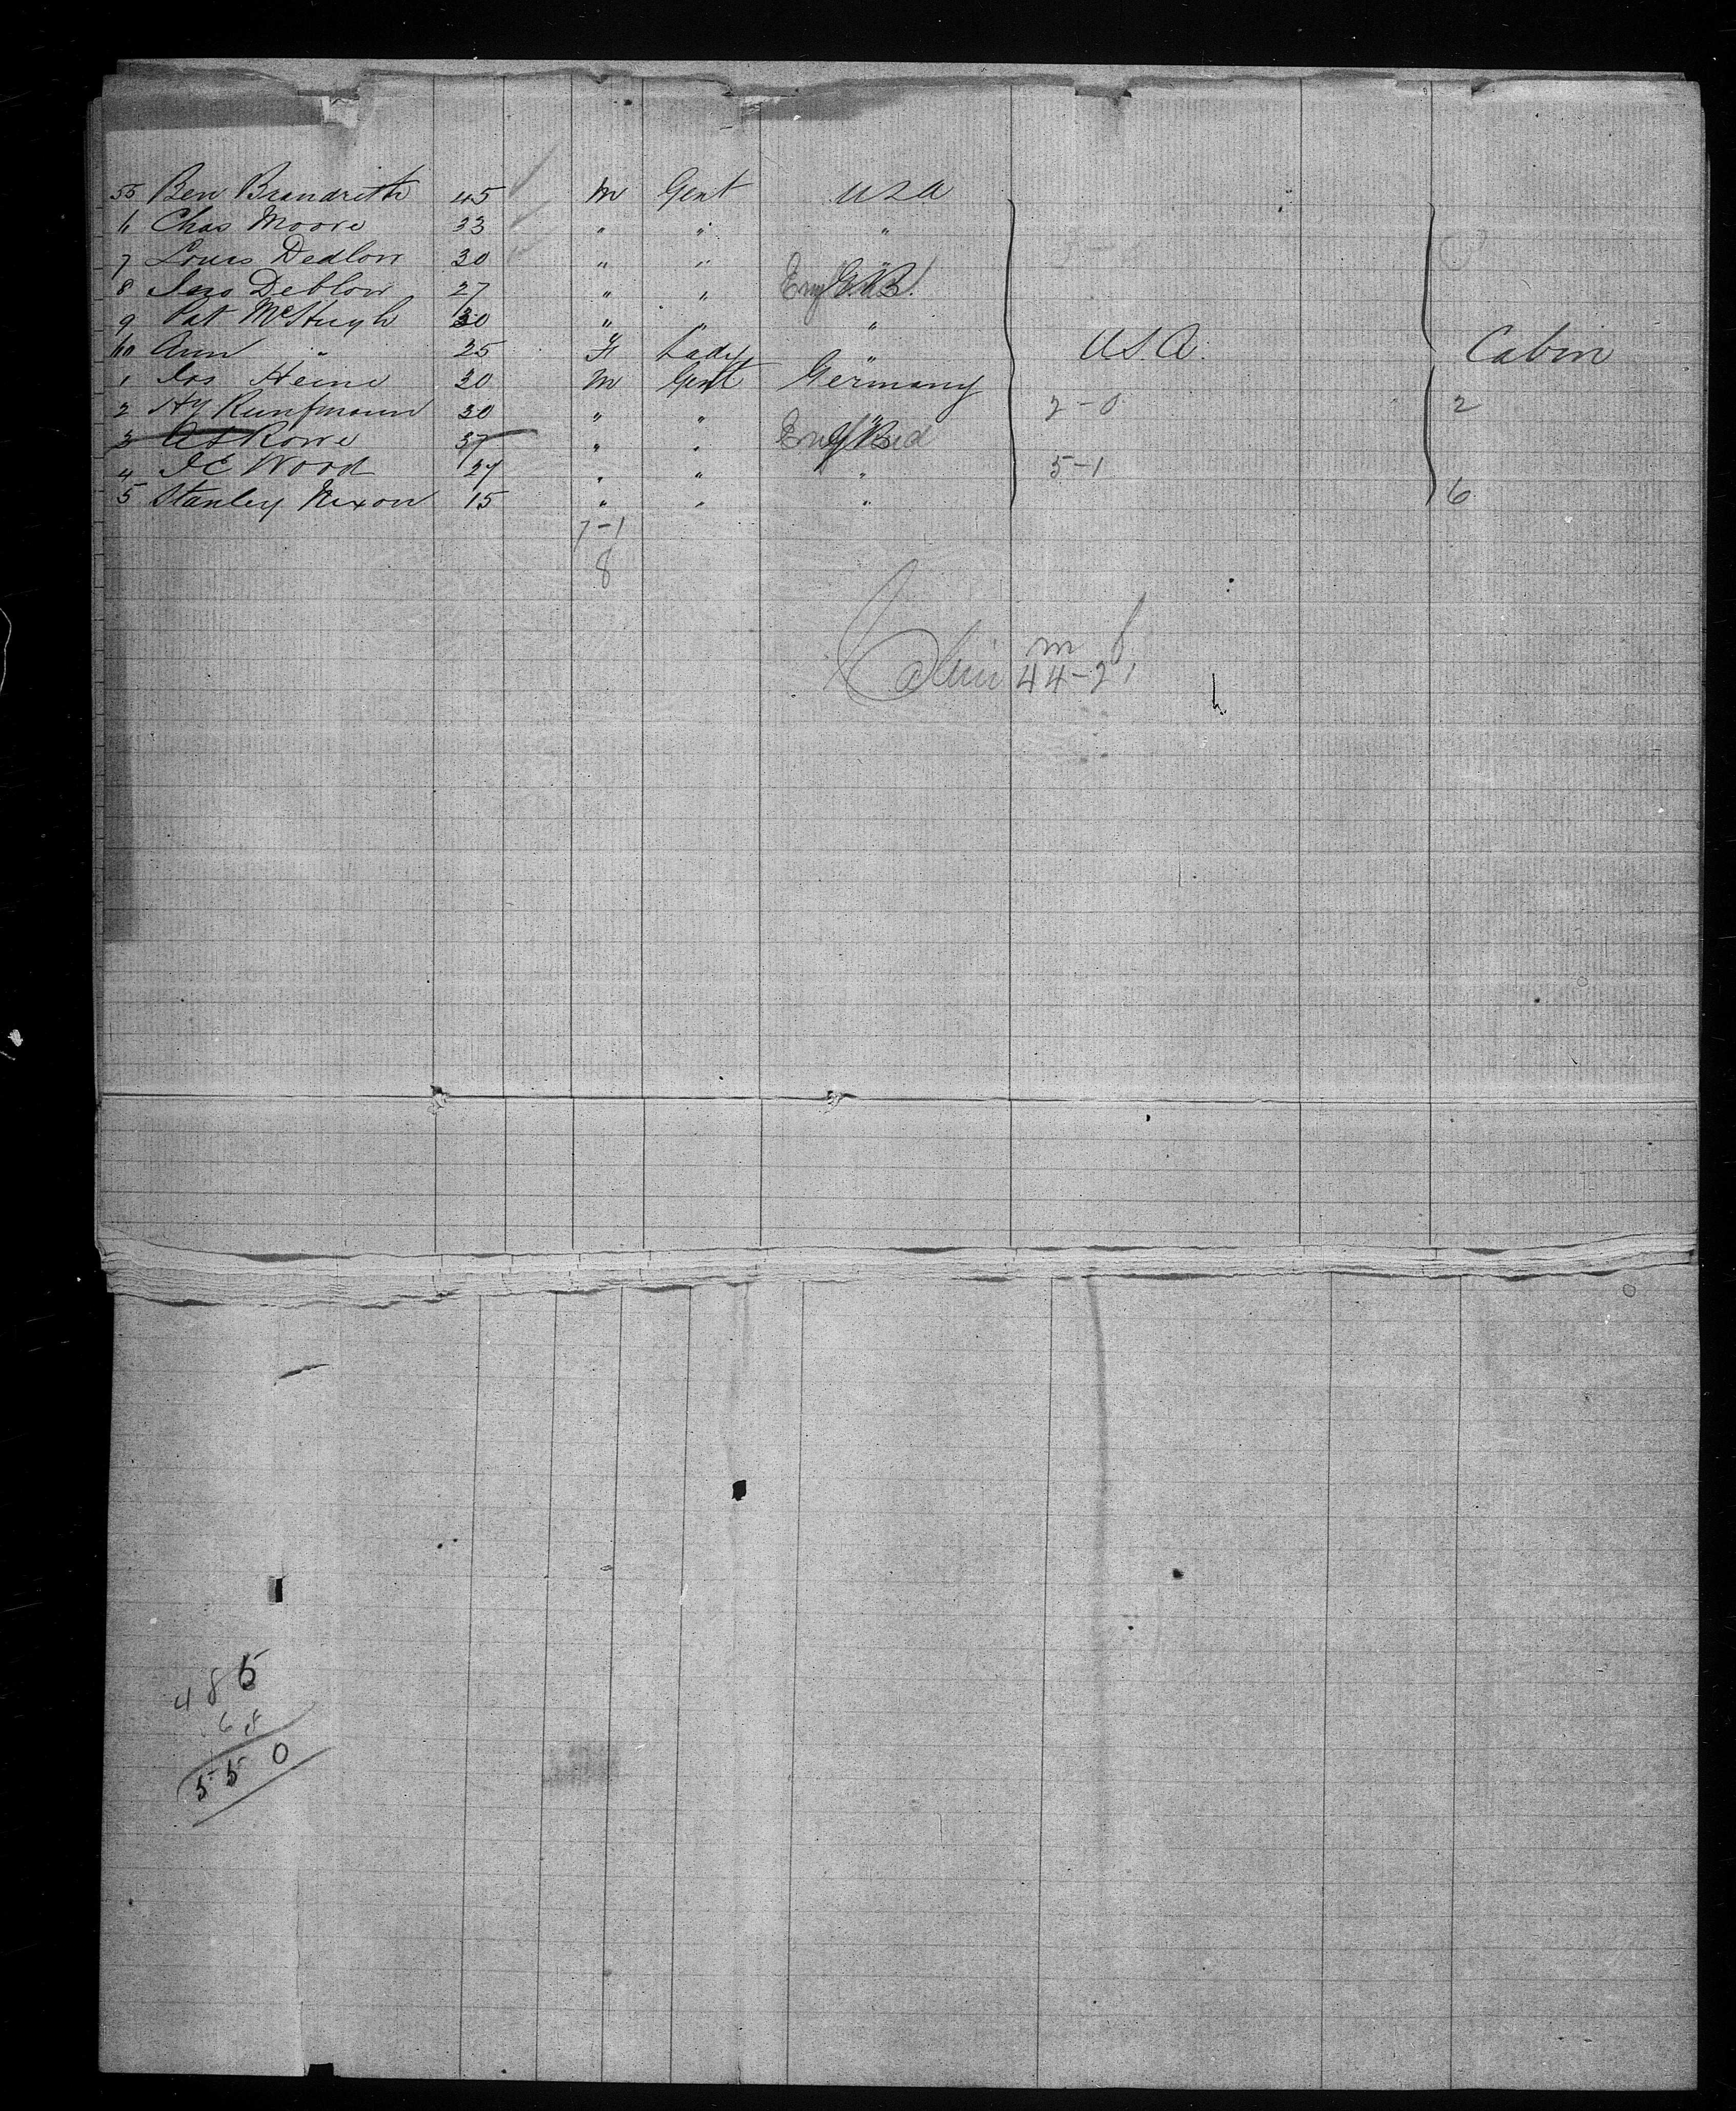 55 Ben Brandreth 45 M Gent USA
6 Chas Moore 33 " " "
7 Louis Dedlow 30 " " "
8 Jno Deblow 27 " " G.B.
9 Pat McHugh 30 " " "
60 Ann " 25 F Lady " USA Cabin
1 Jos Heine 30 M Gent Germany
2 Hy 30 " " " 2-0 2
3 Rowe 37 " "
4 J C Wood 27 " " " 5-1
5 Stanley Nixon 15 " " " 6
7-1
8
m f
Cabin 44-21
485
68
550